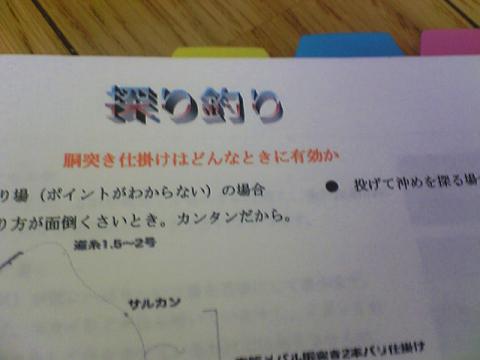 探り釣り
胴突き仕掛けはどんなときに有効か
り場（ポイントがわからない）の場合
● 投げて沖めを探る場
り方が面倒くさいとき。カンタンだから。
道糸1.5～2号
サルカン
メバル胴突き2本バリ仕掛け